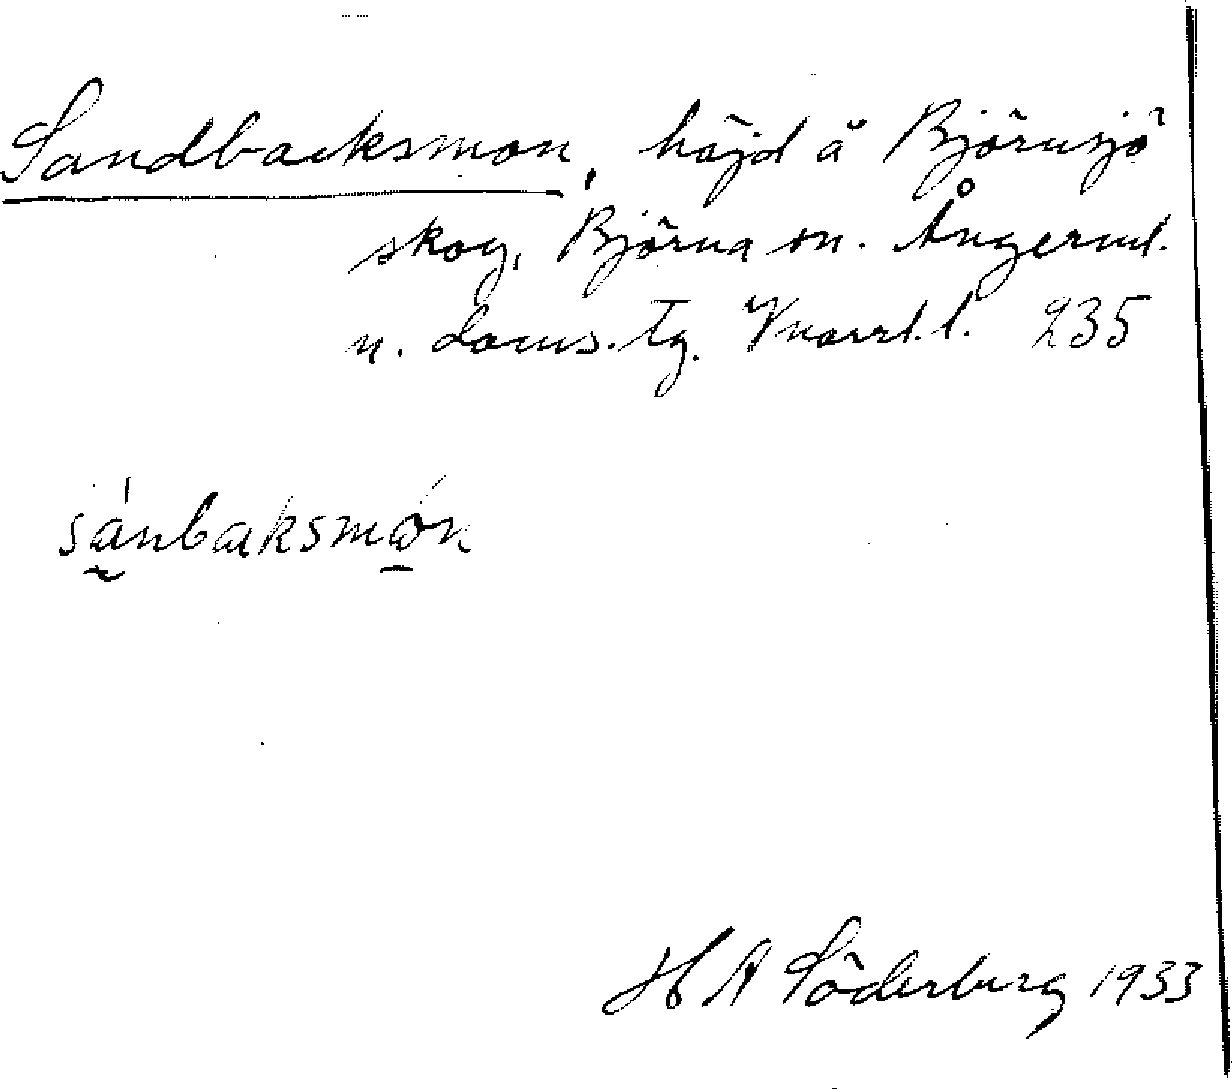 Sandbacksmon, höjd å Björnsjö
skog, Björna sn. Ångerml.
n. doms. tg. Vnorrl. l. 235
sánbaksmón
H A Söderberg 1933